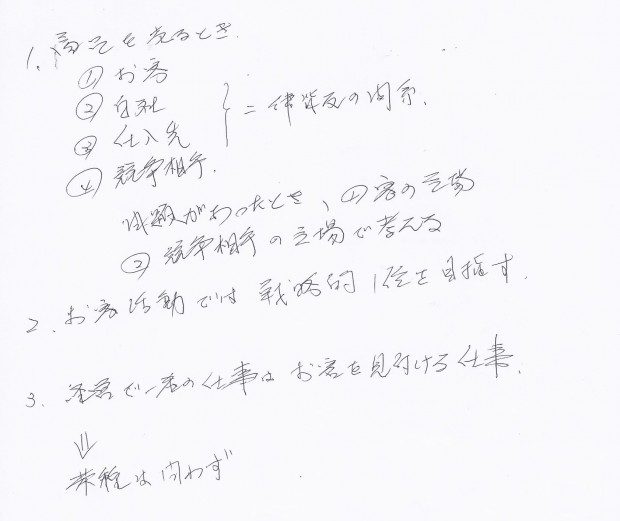 1. 商品を売るとき
① お客
② 自社
③ 仕入先
④ 競争相手.
} = 利害の関係.
問題があったとき、① 客の立場
② 競争相手の立場で考える
2. お客活動では 戦略的 1位を目指す.
3. 経営で一番の仕事は お客を見付ける仕事.
⇓
業種は問わず